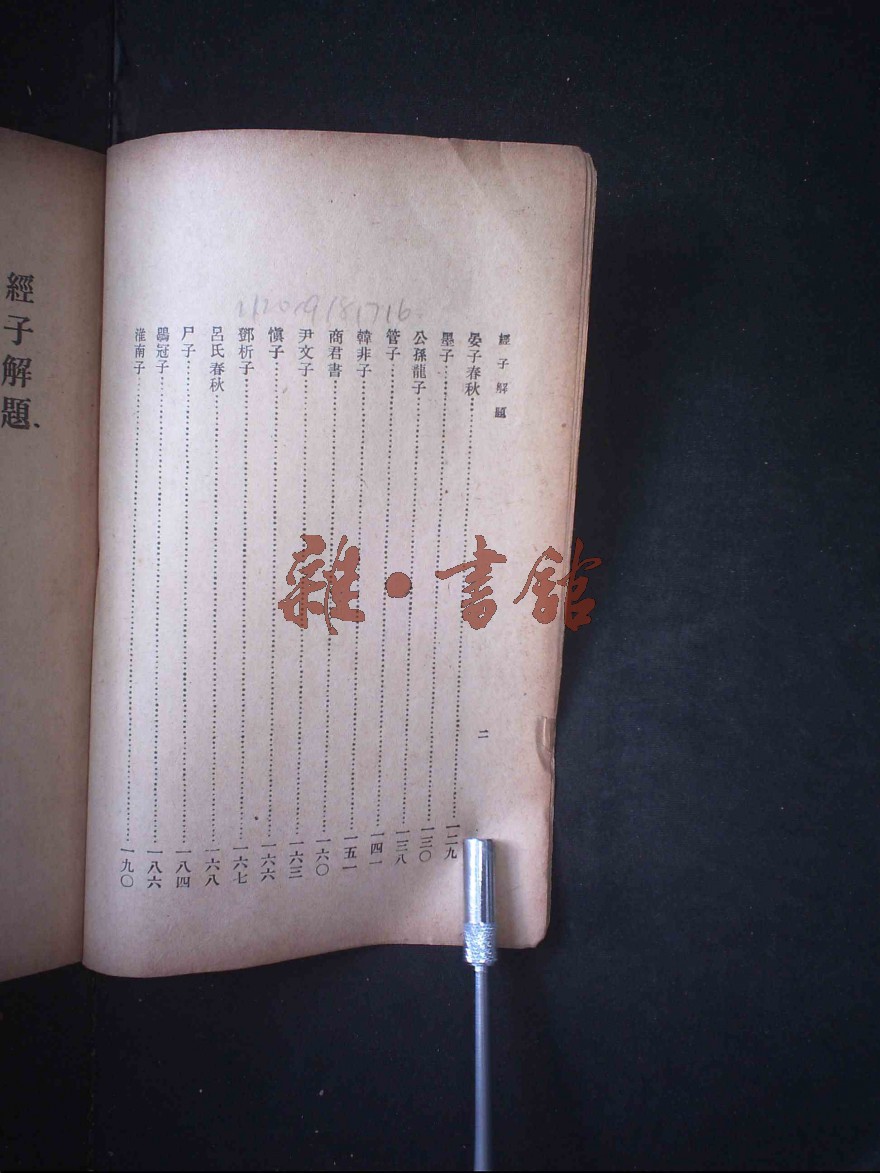 經子解題
二
晏子春秋………一二九
墨子………一三〇
公孫龍子………一三八
管子………一四一
韓非子………一五一
商君書………一六〇
尹文子………一六三
愼子………一六六
鄧析子………一六七
呂氏春秋………一六八
尸子………一八四
鶡冠子………一八六
淮南子………一九〇
經子解題
雜·書館